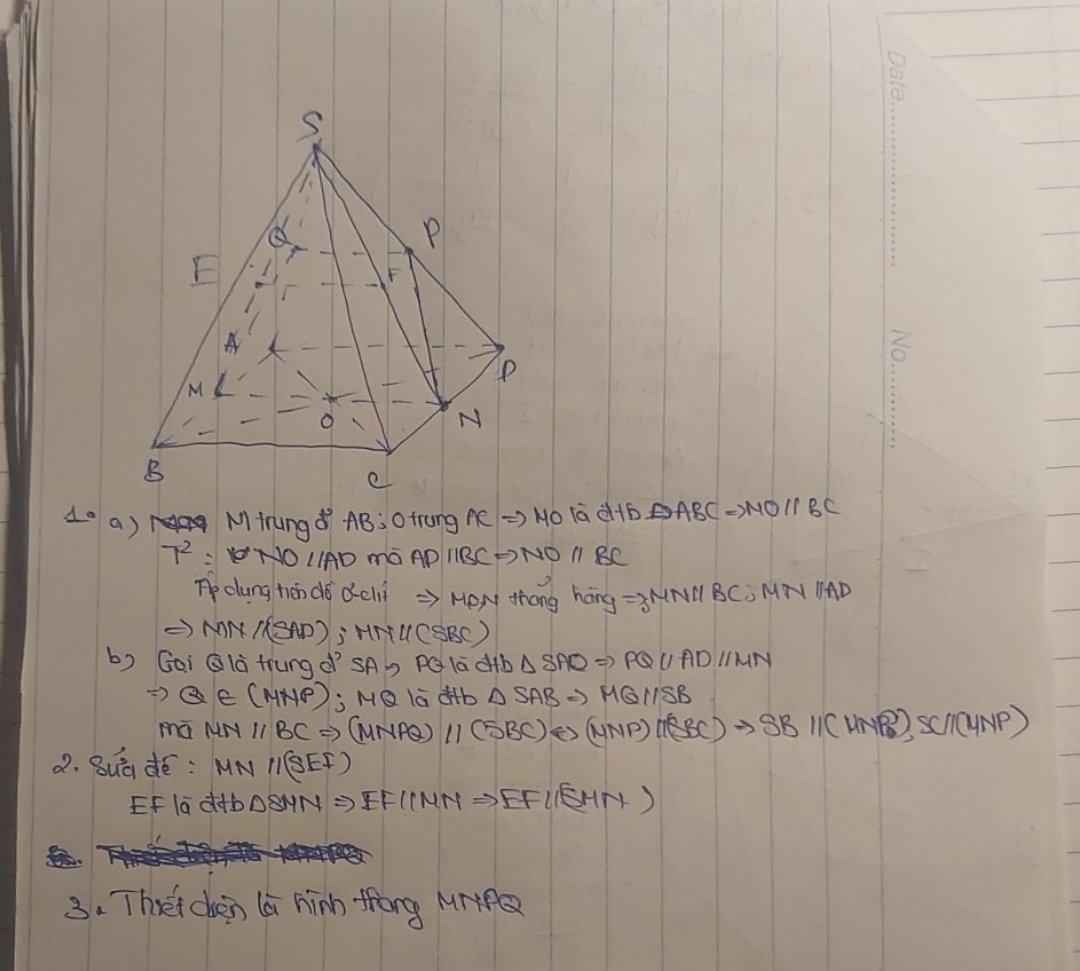 S
P
Q
E
F
A
D
M
N
O
B
C
Date
No
1. a) M trung đ' AB; O trung AC => MO là đtb ΔABC => MO // BC
T²: NO // AD mà AD // BC => NO // BC
Áp dụng tiên đề ơclit => M,O,N thẳng hàng => MN // BC; MN // AD
=> MN // (SAD); MN // (SBC)
b) Gọi Q là trung đ' SA => PQ là đtb Δ SAD => PQ // AD // MN
=> Q ∈ (MNP); MQ là đtb Δ SAB => MQ // SB
mà MN // BC => (MNPQ) // (SBC) <=> (MNP) // (SBC) => SB // (MNP), SC // (MNP)
2. Sửa đề: MN // (SEF)
EF là đtb ΔSMN => EF // MN => EF // (SMN)
3. Thiết diện là hình thang MNPQ